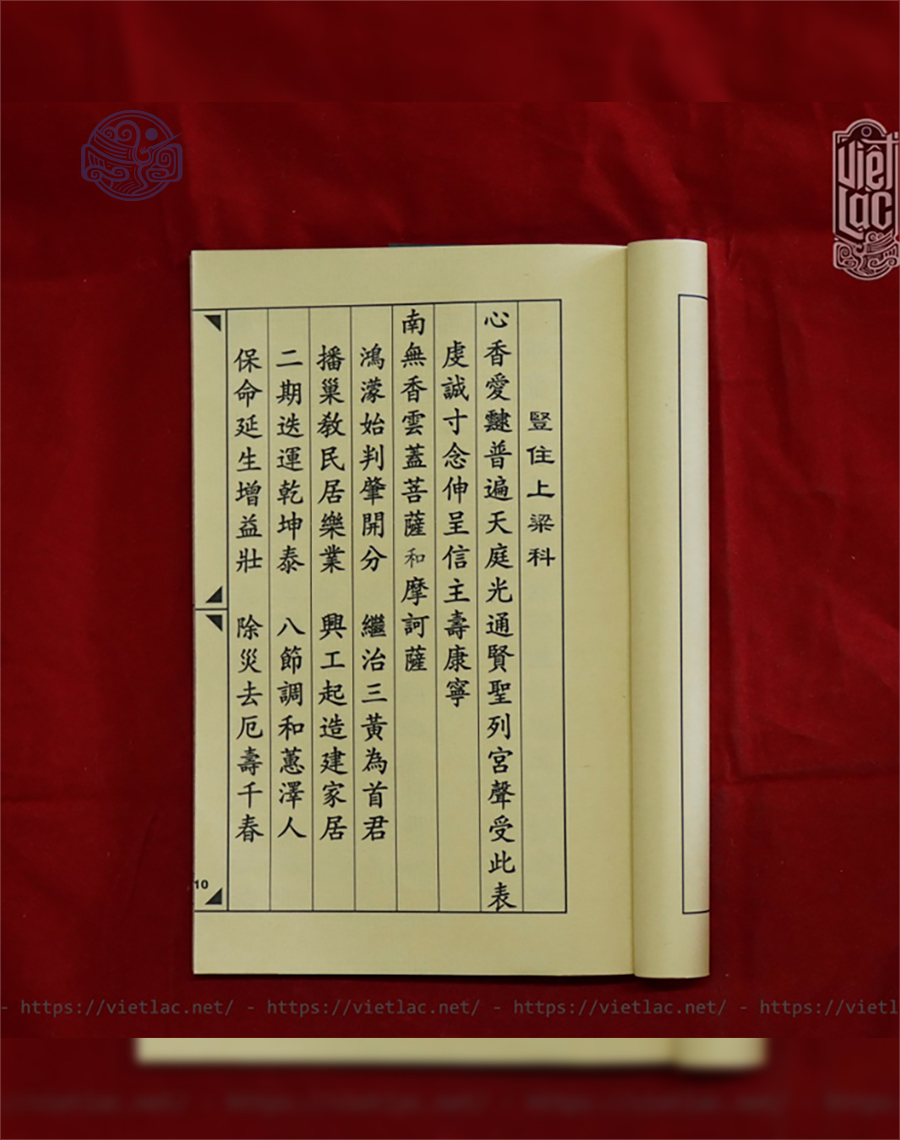 豎住上梁科
心香愛普遍天庭光通賢聖列宮聲受此表
虔誠寸念伸呈信主壽康寧
南無香雲蓋菩薩和摩訶薩
鴻濛始判肇開分 繼治三黃為首君
播巢敎民居樂業 興工起造建家居
二期迭運乾坤泰 八節調和蕙澤人
保命延生增益壯 除災去厄壽千春
10
Việt Lạc
- https://vietlac.net/ - https://vietlac.net/ - https://vietlac.net/ - https://vietl